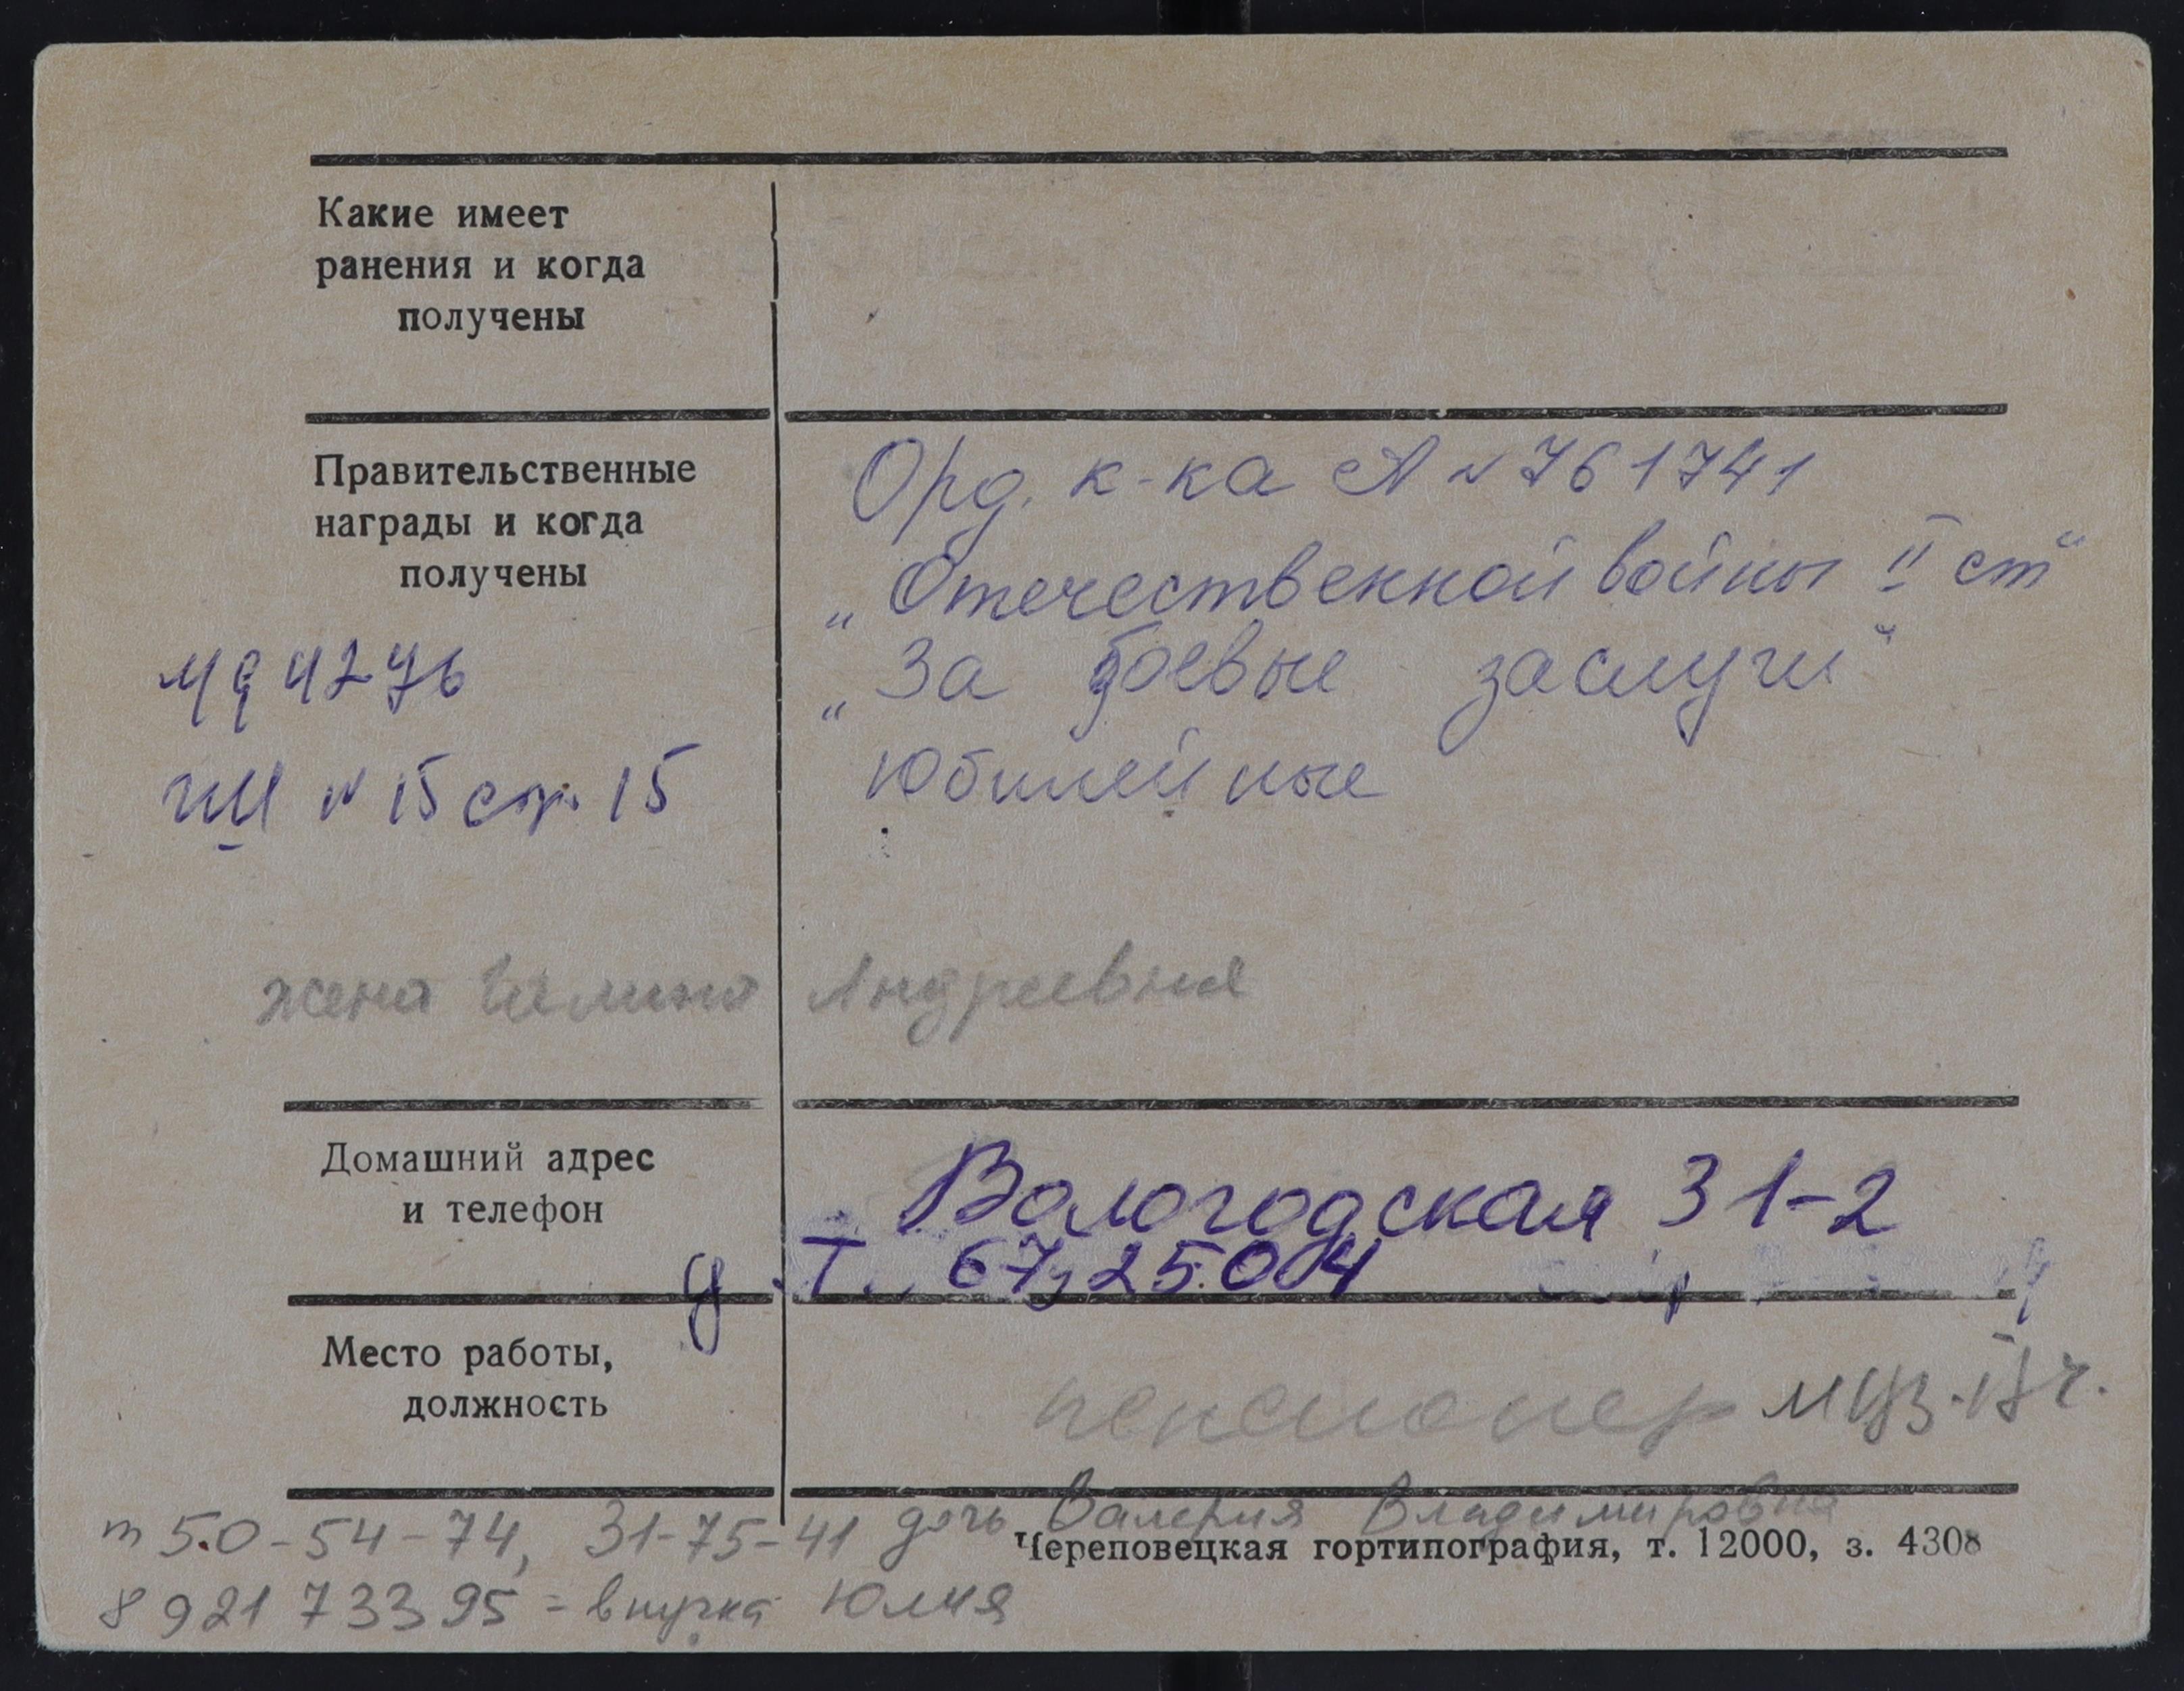 Какие имеет
ранения и когда
получены
Правительственные
награды и когда
получены
Орд. к-ка А N 761741
„Отечественной войны II ст“
„За боевые заслуги“
юбилейные
4276
N 15 стр. 15
жена Галина Андреевна
Домашний адрес
и телефон
Вологодская 31-2
д.т. 67,25.04
Место работы,
должность
пенсионер
т 5.0-54-74, 31-75-41 дочь Валерия Владимировна
Череповецкая гортипография, т. 12000, з. 4308
8 921 733 95 = внучка Юлия